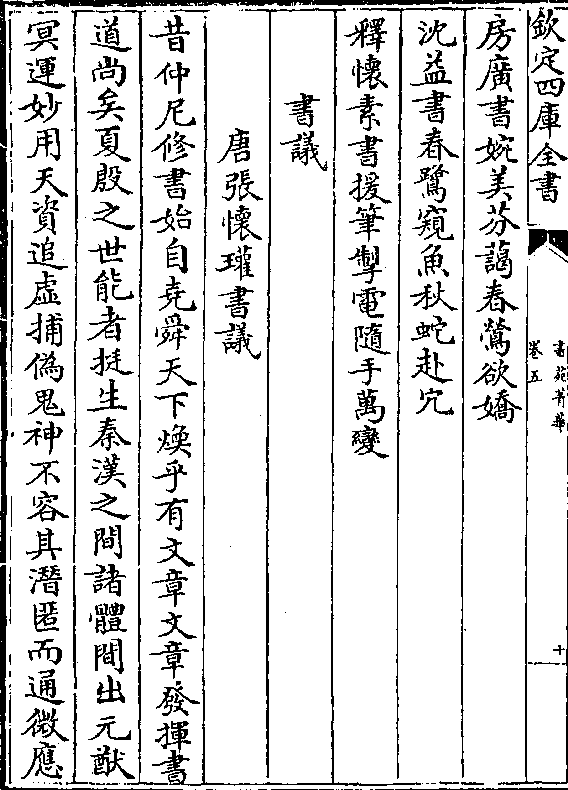 欽定四庫全書
書苑菁華
卷五
十
房廣書婉美芬藹春鶯欲嬌
沈益書春鷺窺魚秋蛇赴穴
釋懷素書援筆掣電隨手萬變
書議
唐張懷瓘書議
昔仲尼修書始自堯舜天下煥乎有文章文章發揮書
道尚矣夏殷之世能者挺生秦漢之間諸體間出元猷
冥運妙用天資追虛捕僞鬼神不容其潛匿而通微應